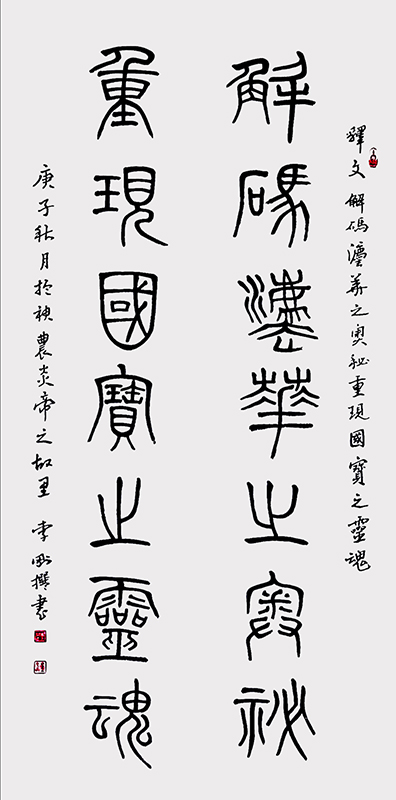 釋文 解碼灋華之奧秘重現國寶之靈魂
解碼灋華之奧祕
重現國寶之靈魂
庚子秋月於神農炎帝之故里 李剛撰書